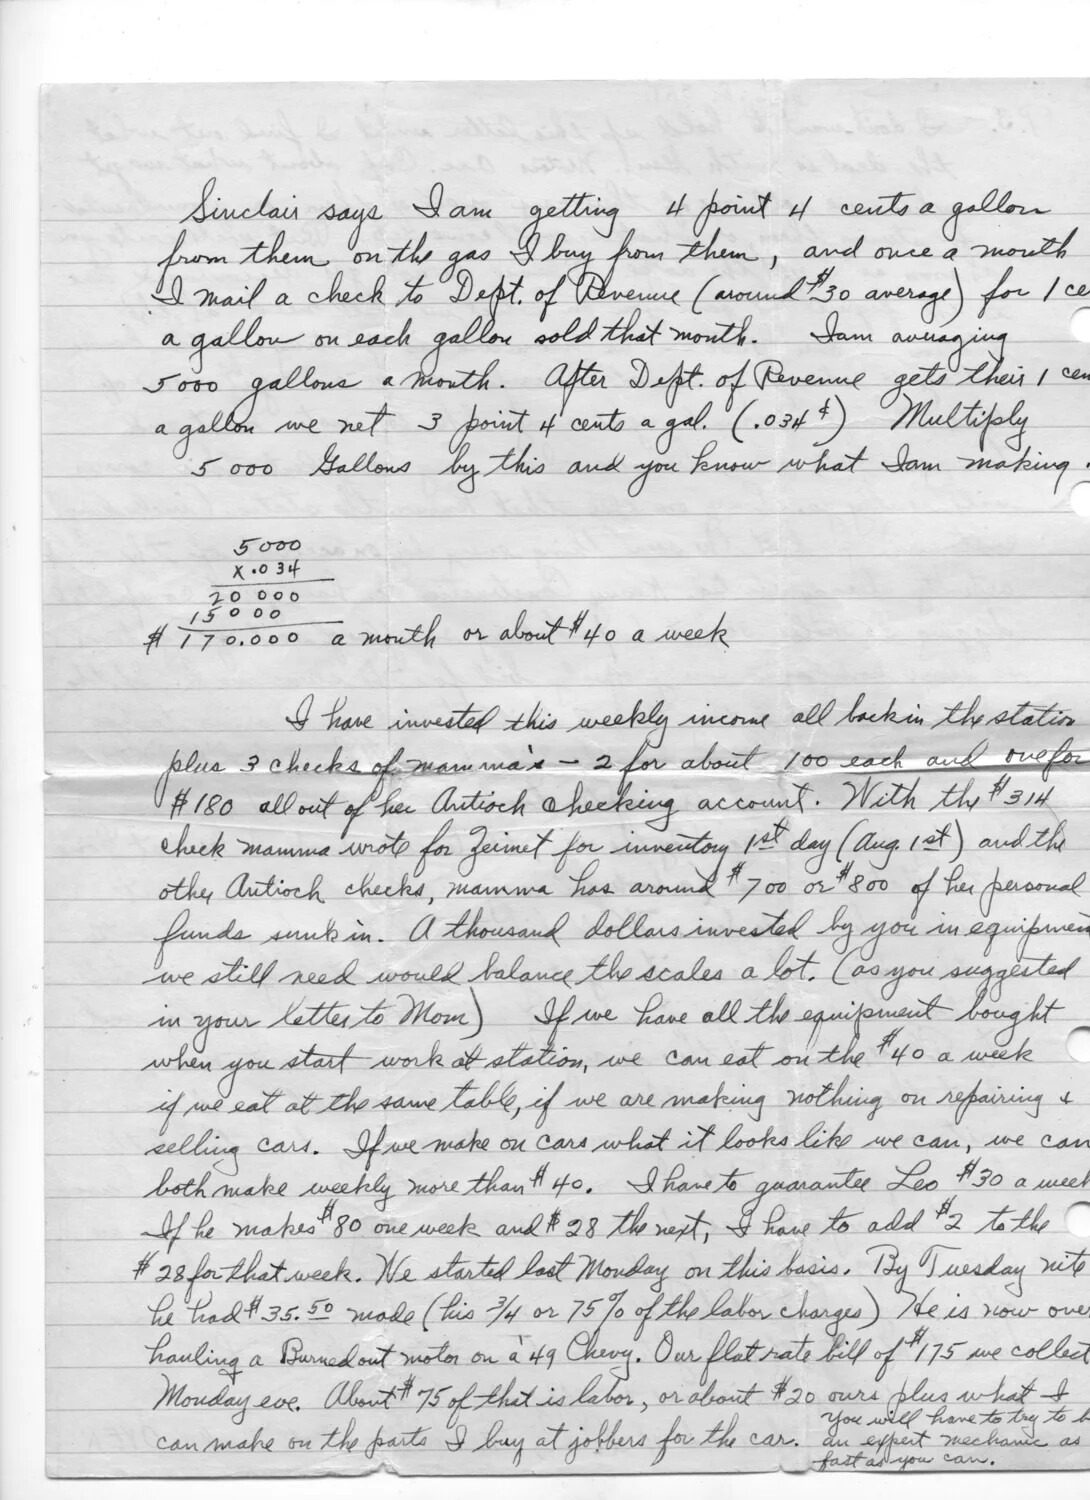 Sinclair says I am getting 4 point 4 cents a gallon
from them on the gas I buy from them, and once a month
I mail a check to Dept. of Revenue (around $30 average) for 1 ce
a gallon on each gallon sold that month. I am averaging
5000 gallons a month. After Dept. of Revenue gets their 1 cen
a gallon we net 3 point 4 cents a gal. (.034¢) Multiply
5000 Gallons by this and you know what I am making.
5000
x.034
20000
15000
$170.000 a month or about $40 a week
I have invested this weekly income all back in the station
plus 3 checks of mamma's - 2 for about 100 each and one for
$180 all out of her Antioch checking account. With the $314
check mamma wrote for Zeimet for inventory 1st day (Aug. 1st) and the
other Antioch checks, mamma has around $700 or $800 of her personal
funds sunk in. A thousand dollars invested by you in equipmen
we still need would balance the scales a lot. (as you suggested
in your letter to Mom) If we have all the equipment bought
when you start work at station, we can eat on the $40 a week
if we eat at the same table, if we are making nothing on repairing &
selling cars. If we make on cars what it looks like we can, we can
both make weekly more than $40. I have to guarantee Leo $30 a week
If he makes $80 one week and $28 the next, I have to add $2 to the
$28 for that week. We started last Monday on this basis. By Tuesday nite
he had $35.50 made (his 3/4 or 75% of the labor charges) He is now over
hauling a Burned out motor on a '49 Chevy. Our flat rate bill of $175 we collect
Monday eve. About $75 of that is labor, or about $20 ours plus what I
can make on the parts I buy at jobbers for the car.
you will have to try to b
an expert mechanic as
fast as you can.